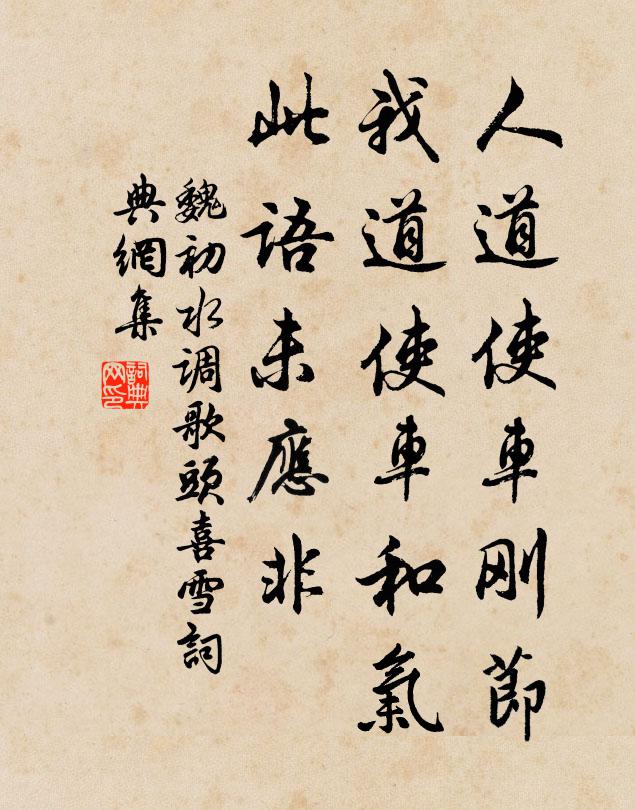 人道使車刚節
我道使車和氣
此語未應非
魏初水调歌頭喜雪詞
典網集
詞典网印